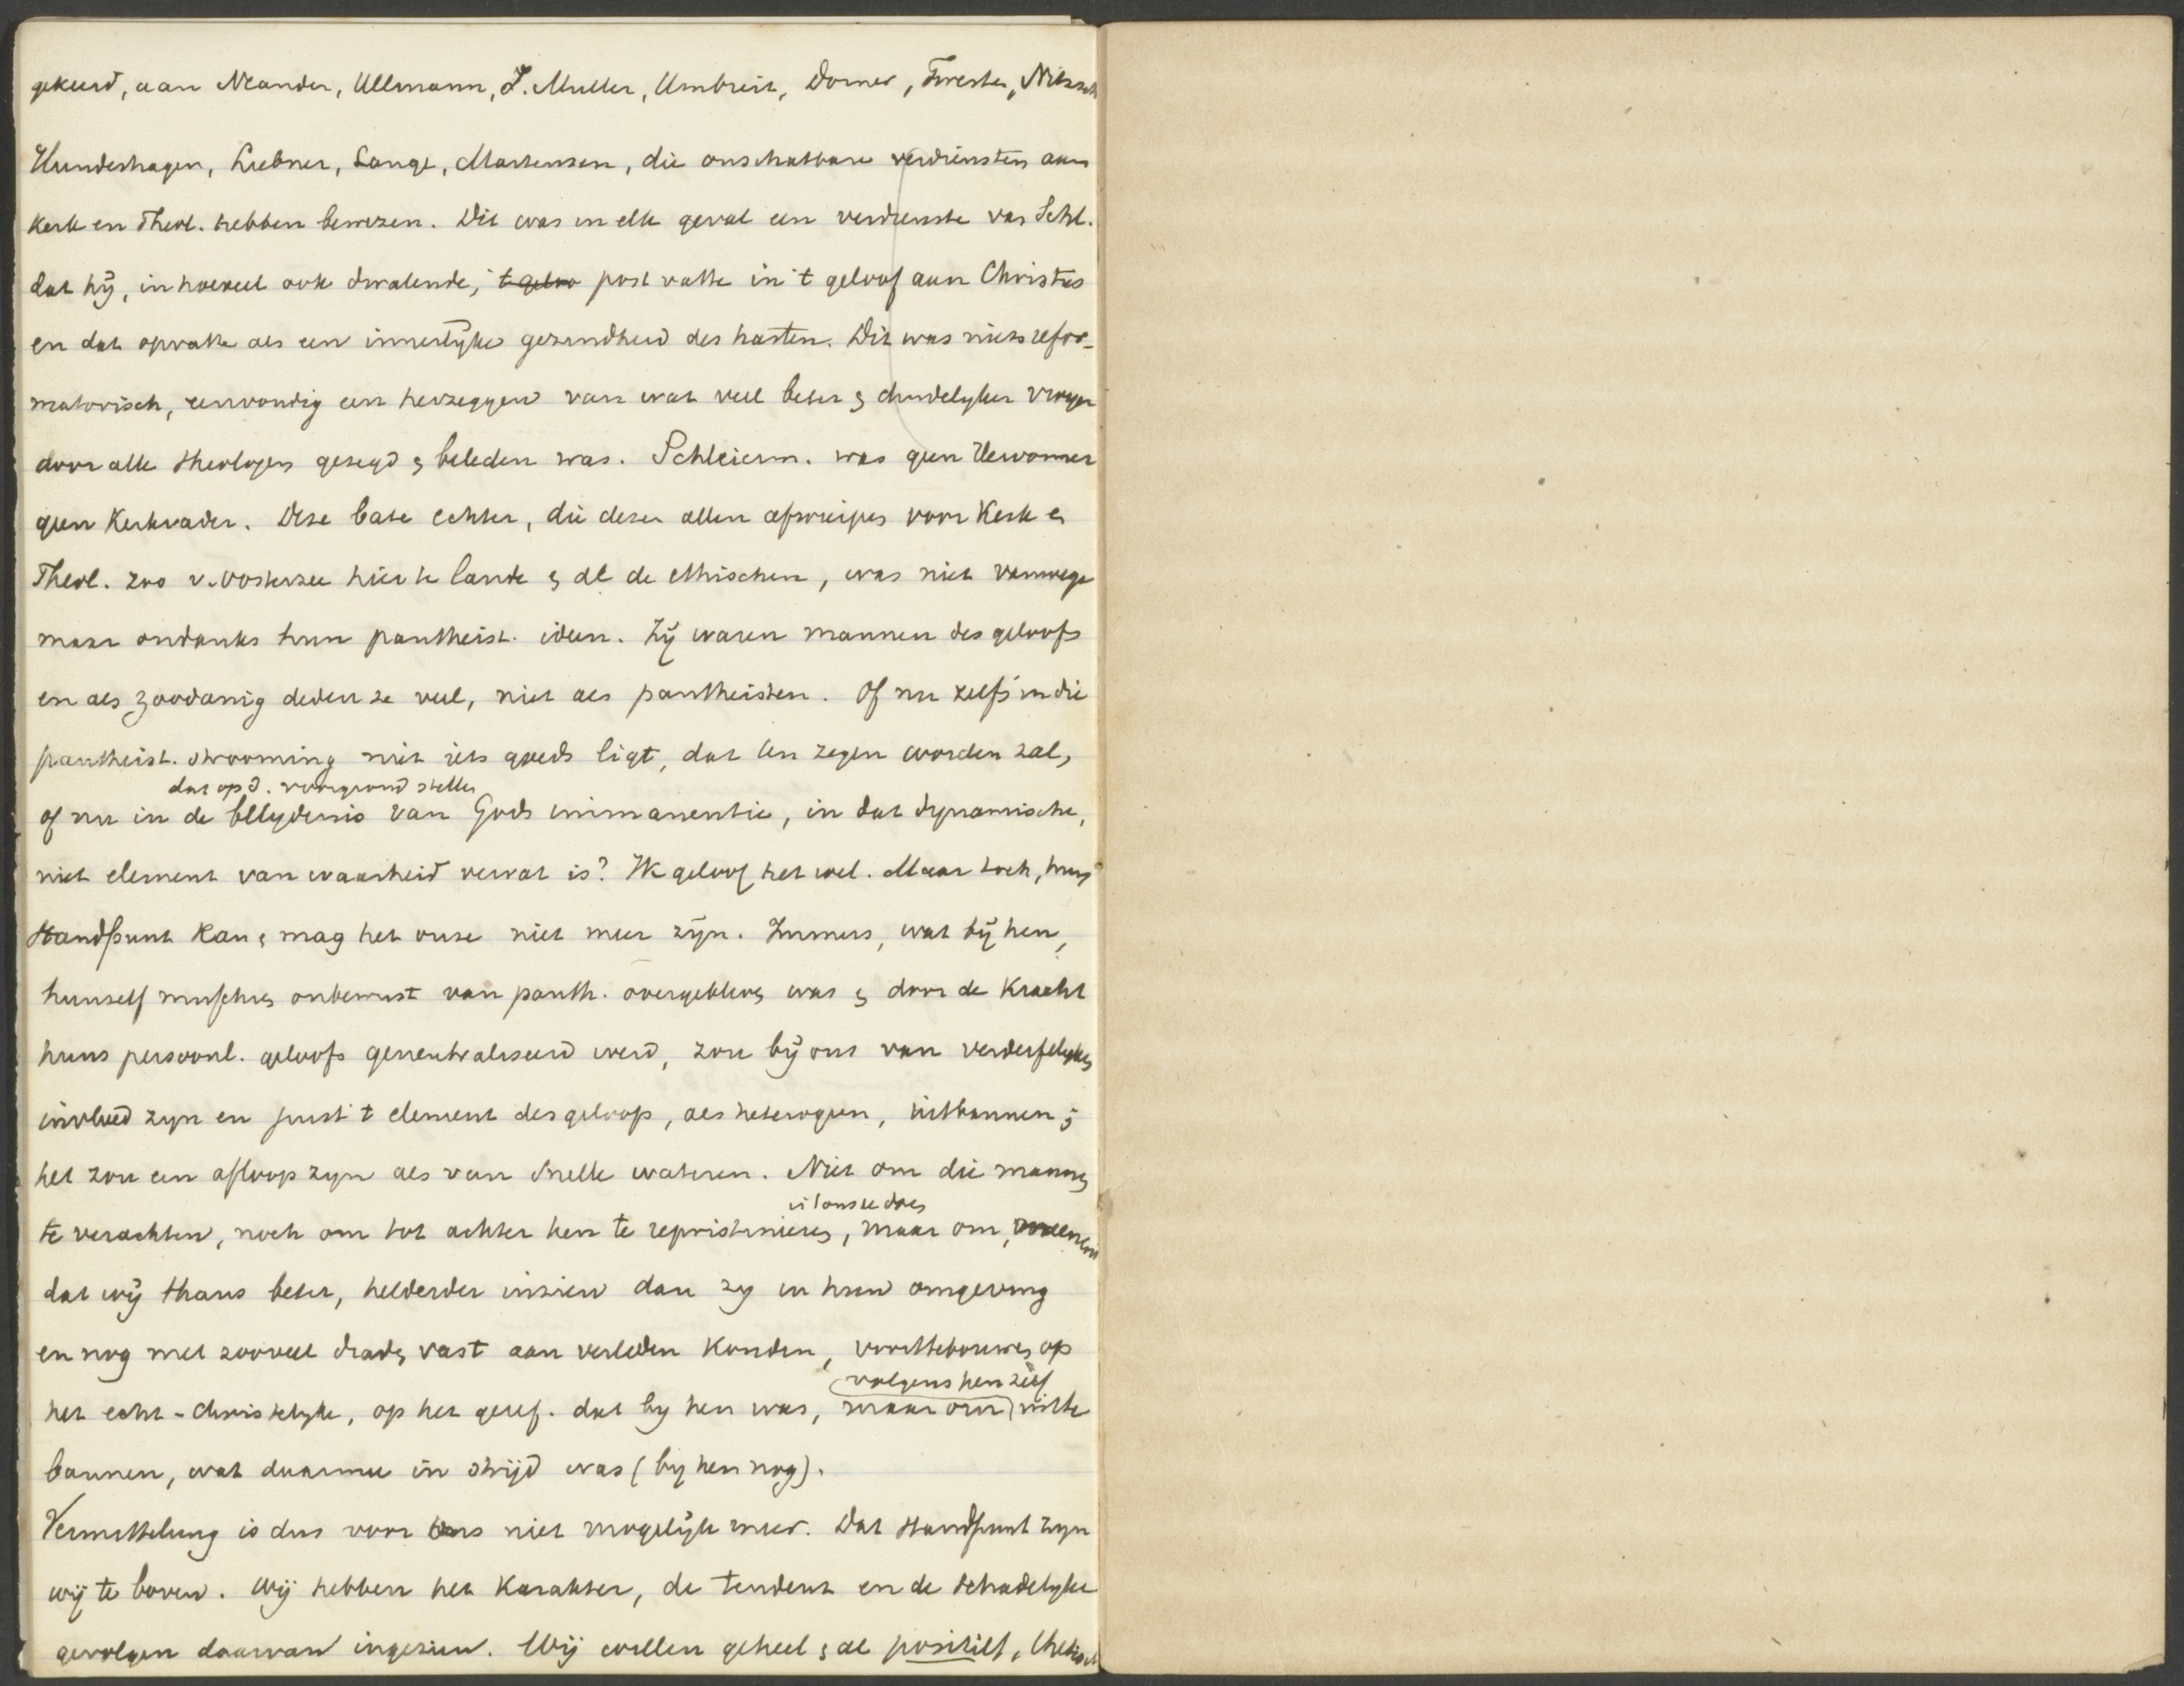 gekeerd, aan Neander, Ullmann, J. Muller, Umbreit, Dorner, Twesten, Nitzsch
Hundeshagen, Liebner, Lange, Martensen, die onschatbare verdiensten aan
Kerk en Theol. hebben bewezen. Dit was in elk geval een verdienste van Schl.
dat hij, in hoeveel ook dwalende, 't geloo post vatte in 't geloof aan Christus
en dat opvatte als een innerlijke gezindheid des harten. Dit was niets refor-
matorisch, eenvoudig een herzeggen van wat veel beter & duidelyker vroeger
door alle theologen gezegd & beleden was. Schleierm. was geen Hervormer
geen Kerkvader. Deze bate echter, die dezen allen afwierpen voor Kerk en
Theol. zoo v. Oosterzee hier te lande & al de ethischen, was niet vanwege
maar ondanks hun pantheist. ideen. Zij waren mannen des geloofs
en als zoodanig deden ze veel, niet als pantheisten. Of nu zelfs in die
pantheist. strooming niet iets goeds ligt, dat ten zegen worden zal,
dat op d. voorgrond stellen
of nu in de bllydenis van Gods immanentie, in dat dynamische,
niet element van waarheid vervat is? Ik geloof het wel. Maar toch, hun
standpunt kan & mag het onze niet meer zijn. Immers, wat bij hen,
hunzelf misschien onbewust van panth. overgebleven was & door de Kracht
huns persoonl. geloofs geneutraliseerd werd, zou bij ons van verderfelyken
invloed zyn en juist 't element des geloofs, als heterogeen, uitbannen;
het zou een afloop zyn als van snelle wateren. Niet om die mannen
te verachten, noch om tot achter hen te repristineren, maar om,
dat wij thans beter, helderder inzien dan zy in hun omgeving
en nog met zooveel draden vast aan verleden konden, voorttebouwen op
volgens hen zelf
het echt-christelyke, op het geref. dat by hen was, maar om uitte
bannen, wat daarmee in strijd was (by hen nog).
Vermittelung is dus voor ons niet mogelijk meer. Dat standpunt zyn
wij te boven. Wij hebben het Karakter, de tendenz en de schadelyke
gevolgen daarvan ingezien. Wij willen geheel & al positief,